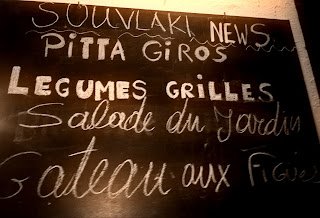 SOUVLAKI NEWS
PITTA GIROS
LEGUMES GRILLES
Salade du Jardin
Gateau aux FIGUES